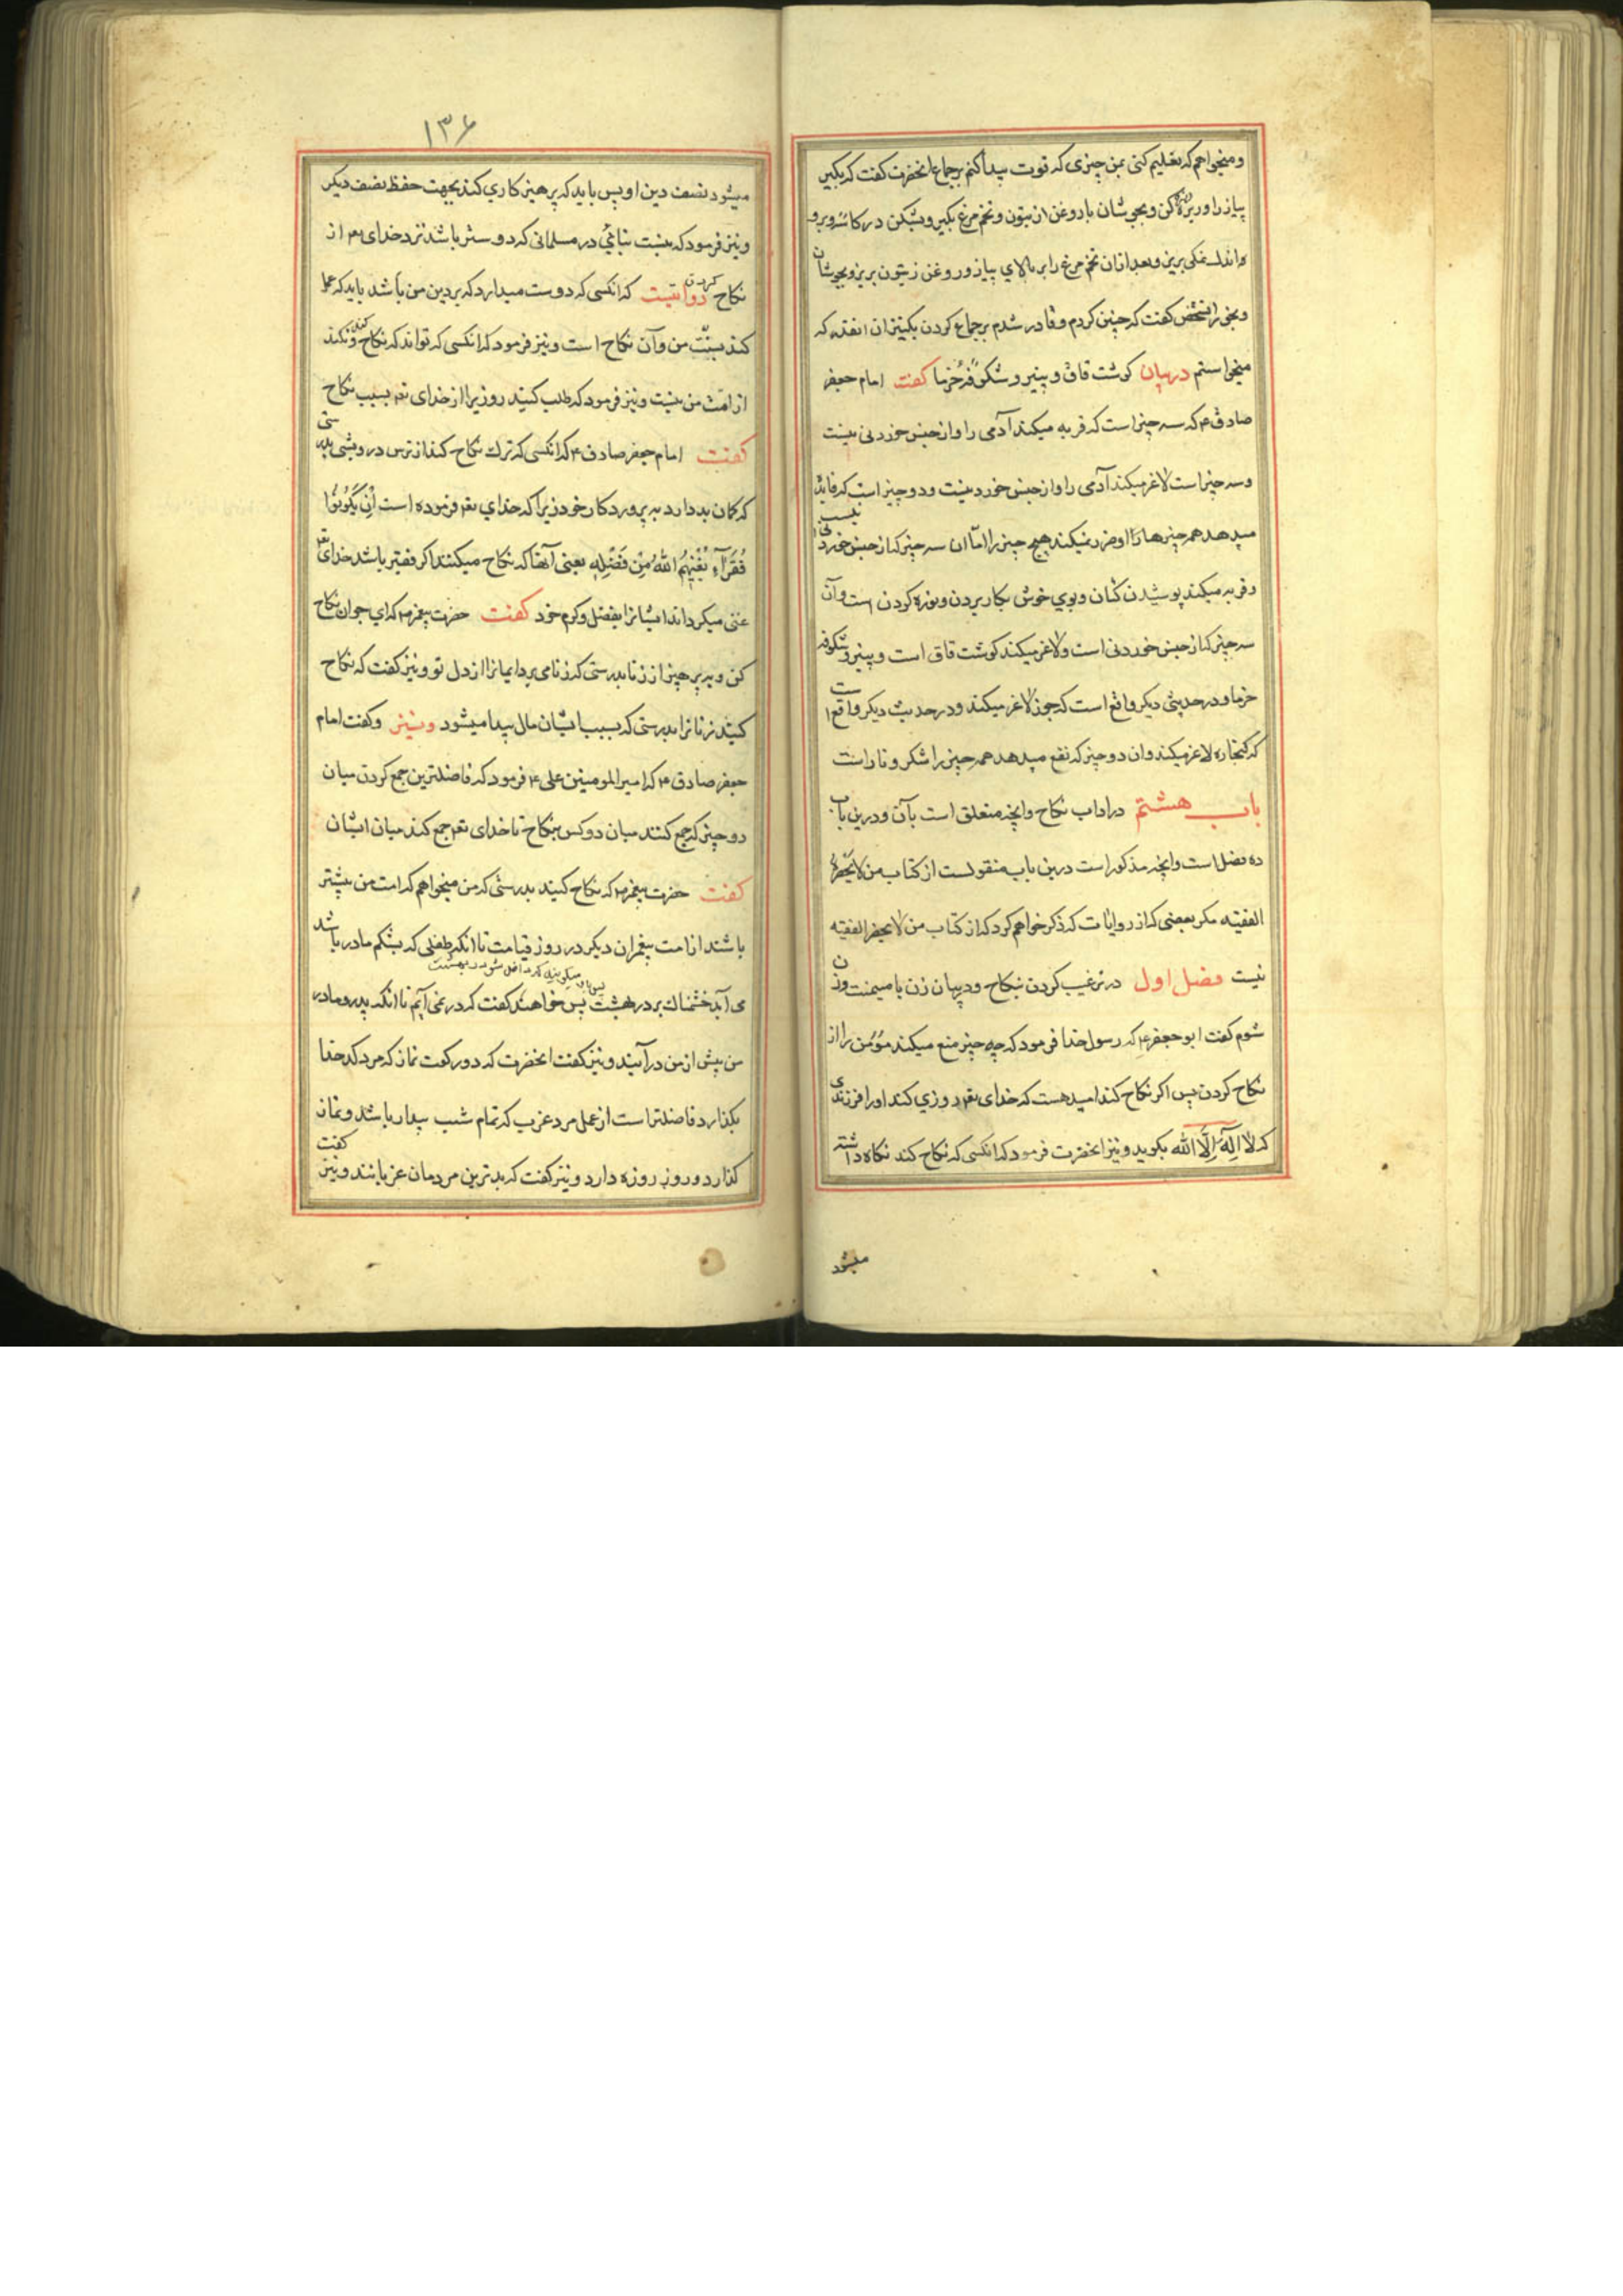 و میخواهم که تعلیم کنی بمن چیزی که قوت پیدا کنم بر جماع انحضرت گفت که بگیر
پیاز را و ریزه کن و بجوشان با روغن زیتون و تخم مرغ بگیر و بشکن در کاسه و برو
و اندک نمکی بریز و بعد ازان تخم مرغ را بر بالای پیاز و روغن زیتون بریز و بجوشان
و بخور انشخص گفت که چنین کردم و قادر شدم بر جماع کردن بکنیزان انقدر که
میخواستم در بیان گوشت قاق و پنیر و شکوفه خرما گفت امام جعفر
صادق ع که سه چیز است که فربه میکند آدمی را و از جنس خوردنی نیست
و سه چیز است لاغر میکند آدمی را و از جنس خوردنیست و دو چیز است که فایده
میدهد همه چیزها را و ضرر نمیکند هیچ چیز را اما ان سه چیز که از جنس خوردنی نیست
و فربه میکند پوشیدن کتان و بوی خوش بکار بردن و نوره کردن است و آن
سه چیز که از جنس خوردنی است و لاغر میکند گوشت قاق است و پنیر و شکوفه
خرما و در حدیثی دیگر واقع است که جوز لاغر میکند و در حدیث دیگر واقع است
که کنجاره لاغر میکند و ان دو چیز که نفع میدهد همه چیز را شکر و نار است
باب هشتم در اداب نکاح و انچه متعلق است بآن و درین باب
ده فصل است و انچه مذکور است درین باب منقولست از کتاب من لا یحضره
الفقیه مگر بعضی که از روایات که ذکر خواهم کرد که از کتاب من لا یحضر الفقیه
نیست فصل اول در ترغیب کردن بنکاح و در بیان زن با میمنت و زن
شوم گفت ابو جعفر ع که رسول خدا فرمود که چه چیز منع میکند مؤمن را از
نکاح کردن پس اگر نکاح کند امید هست که خدای تع روزی کند او را فرزندی
که لا اله الا الله بگوید و نیز انحضرت فرمود که انکسی که نکاح کند نگاه داشته
میشود
۱۳۶
میشود نصف دین او پس باید که پرهیزکاری کند بجهت حفظ نصف دیگر
و نیز فرمود که نیست بنائی در مسلمانی که دوستر باشد نزد خدای تع از
نکاح کردن روایتست که انکسی که دوست میدارد که بر دین من باشد باید که عمل
کند بسنت من و آن نکاح است و نیز فرمود که انکسی که تواند که نکاح کند و نکند
از امت من نیست و نیز فرمود که طلب کنید روزی را از خدای تع بسبب نکاح
گفت امام جعفر صادق ع که انکسی که ترک نکاح کند از ترس درویشی بدرستی
که گمان بد دارد به پروردگار خود زیرا که خدای تع فرموده است اِن یَکُونُوا
فُقَرَآءَ یُغْنِهِمُ اللهُ مِن فَضْلِهِ یعنی آنها که نکاح میکنند اگر فقیر باشد خدای تع
غنی میگرداند ایشانرا بفضل و کرم خود گفت حضرت پیغمبر ص که ای جوان نکاح
کن و بپرهیز از زنا بدرستی که زنا می برد ایمانرا از دل تو و نیز گفت که نکاح
کنید زنانرا بدرستی که بسبب ایشان مال پیدا میشود و نیز و گفت امام
جعفر صادق ع که امیر المومنین علی ع فرمود که فاضلترین جمع کردن میان
دو چیز که جمع کنند میان دو کس بنکاح تا خدای تع جمع کند میان ایشان
گفت حضرت پیغمبر ص که نکاح کنید بدرستی که من میخواهم که امت من بیشتر
باشند از امت پیغمبران دیگر در روز قیامت تا انکه طفلی که بشکم مادر باشد
پس باو میگویند که داخل شو در بهشت
می آید خشمناک بر در بهشت پس خواهند گفت که در نمی آیم تا انکه پدر و مادر
من پیش از من درآیند و نیز گفت انحضرت که دو رکعت نماز که مرد کدخدا
بگذارد فاضلتر است از عمل مرد عزب که تمام شب بیدار باشد و نماز
گذارد و روز روزه دارد و نیز گفت که بدترین مردمان عزبانند و نیز گفت